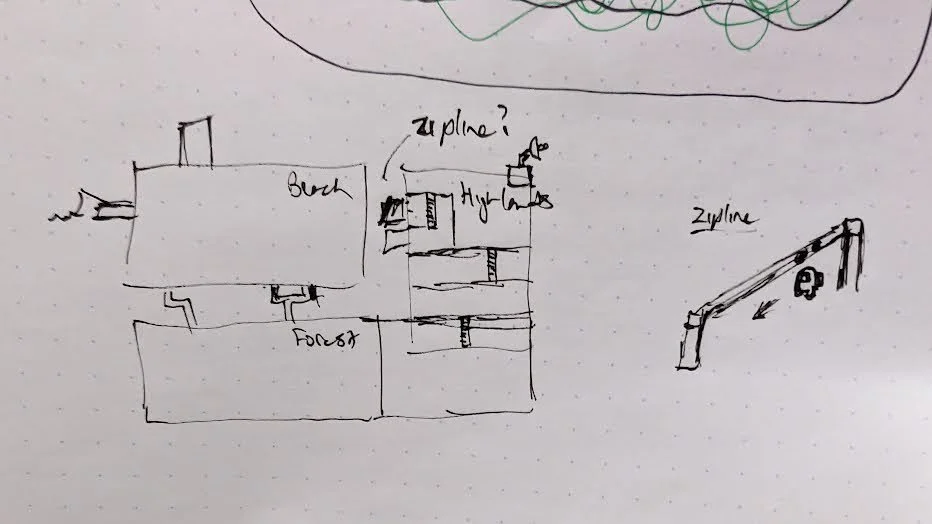 zipline?
Beach
Highlands
Zipline
Forest